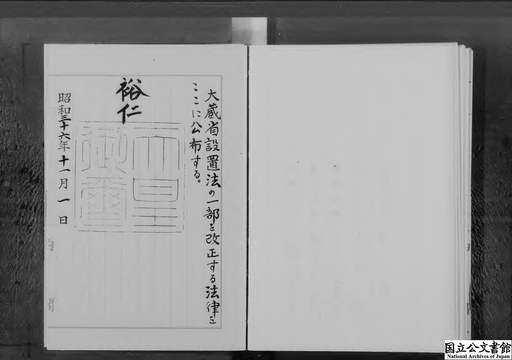 大蔵省設置法の一部を改正する法律を
ここに公布する。
裕仁
天皇
御璽
昭和三十六年十一月一日
国立公文書館
National Archives of Japan